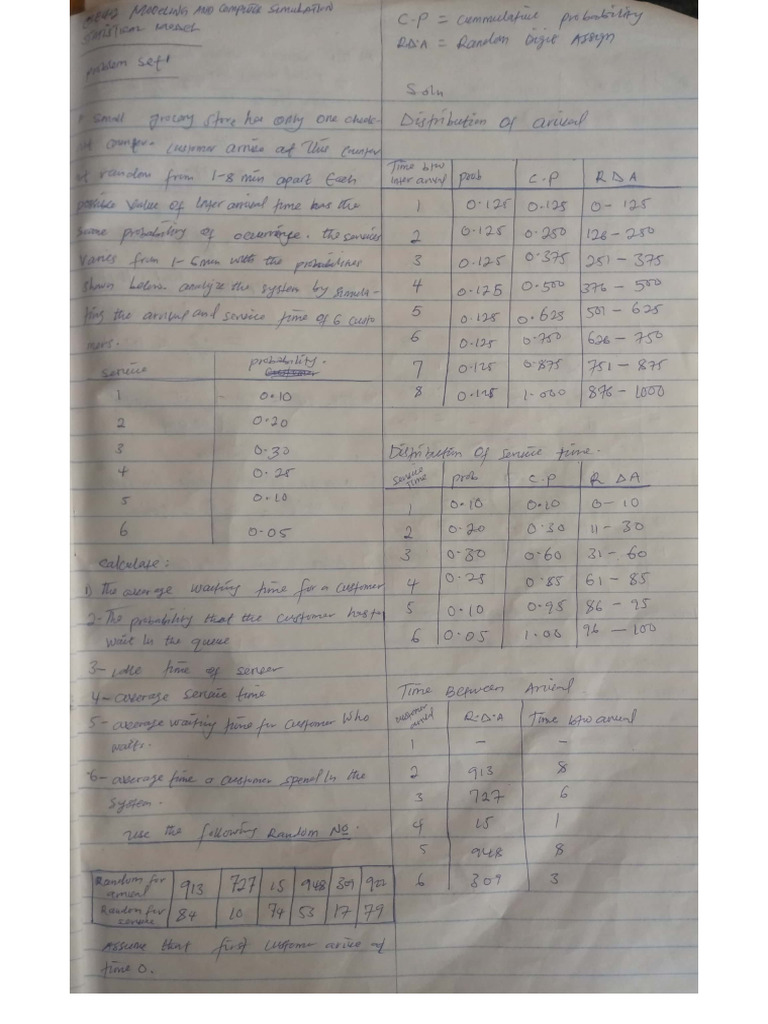 Modeling and computer simulation
problem set 1
small grocery store has only one check-
out counter. customer arrive at this counter
at random from 1-8 min apart Each
possible value of inter arrival time has the
same probability of occurrence. the services
varies from 1-6min with the probabilities
shown below. analyze the system by simula-
ting the arrival and service time of 6 custo
mers.
service probability.
1 0.10
2 0.20
3 0.30
4 0.25
5 0.10
6 0.05
calculate:
1) The average waiting time for a customer
2-The probability that the customer has to
wait in the queue
3- idle time of server
4- average service time
5- average waiting time for customer who
waits.
6- average time a customer spend in the
system.
use the following Random No.
Random for arrival 913 727 15 948 309 922
Random for service 84 10 74 53 17 79
Assume that first customer arrive at
time 0.
C.P = cummulative probability
RDA = Random Digit Assign
Soln
Distribution of arrival
Time btw inter arrival prob C.P R D A
1 0.125 0.125 0-125
2 0.125 0.250 126-250
3 0.125 0.375 251-375
4 0.125 0.500 376-500
5 0.125 0.625 501-625
6 0.125 0.750 626-750
7 0.125 0.875 751-875
8 0.125 1.000 876-1000
Distribution of service time.
service time prob C.P R DA
1 0.10 0.10 0-10
2 0.20 0.30 11-30
3 0.30 0.60 31-60
4 0.25 0.85 61-85
5 0.10 0.95 86-95
6 0.05 1.00 96-100
Time Between Arrival
customer arrival R.D.A Time btw arrival
1 - -
2 913 8
3 727 6
4 15 1
5 948 8
6 309 3